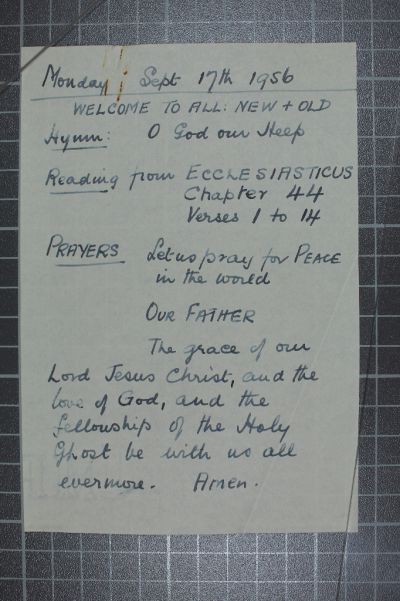 Monday Sept 17th 1956
WELCOME TO ALL: NEW + OLD
Hymn: O God our Heep
Reading from ECCLESIASTICUS
Chapter 44
Verses 1 to 14
PRAYERS Let us pray for PEACE
in the world
OUR FATHER
The grace of our
Lord Jesus Christ, and the
love of God, and the
fellowship of the Holy
Ghost be with us all
evermore. Amen.